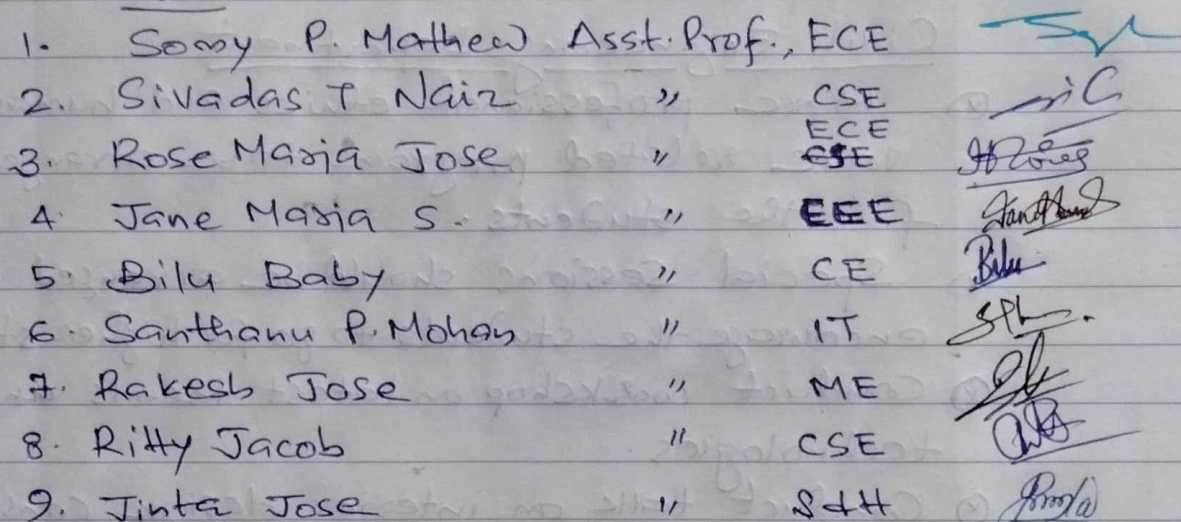 1. Sony P. Mathew Asst. Prof., ECE
2. Sivadas T Nair " CSE
ECE
3. Rose Maria Jose " CSE
4. Jane Maria S. " EEE
5. Bilu Baby " CE Bilu
6. Santhanu P. Mohan " IT
7. Rakesh Jose " ME
8. Ritty Jacob " CSE
9. Jinta Jose " S&H